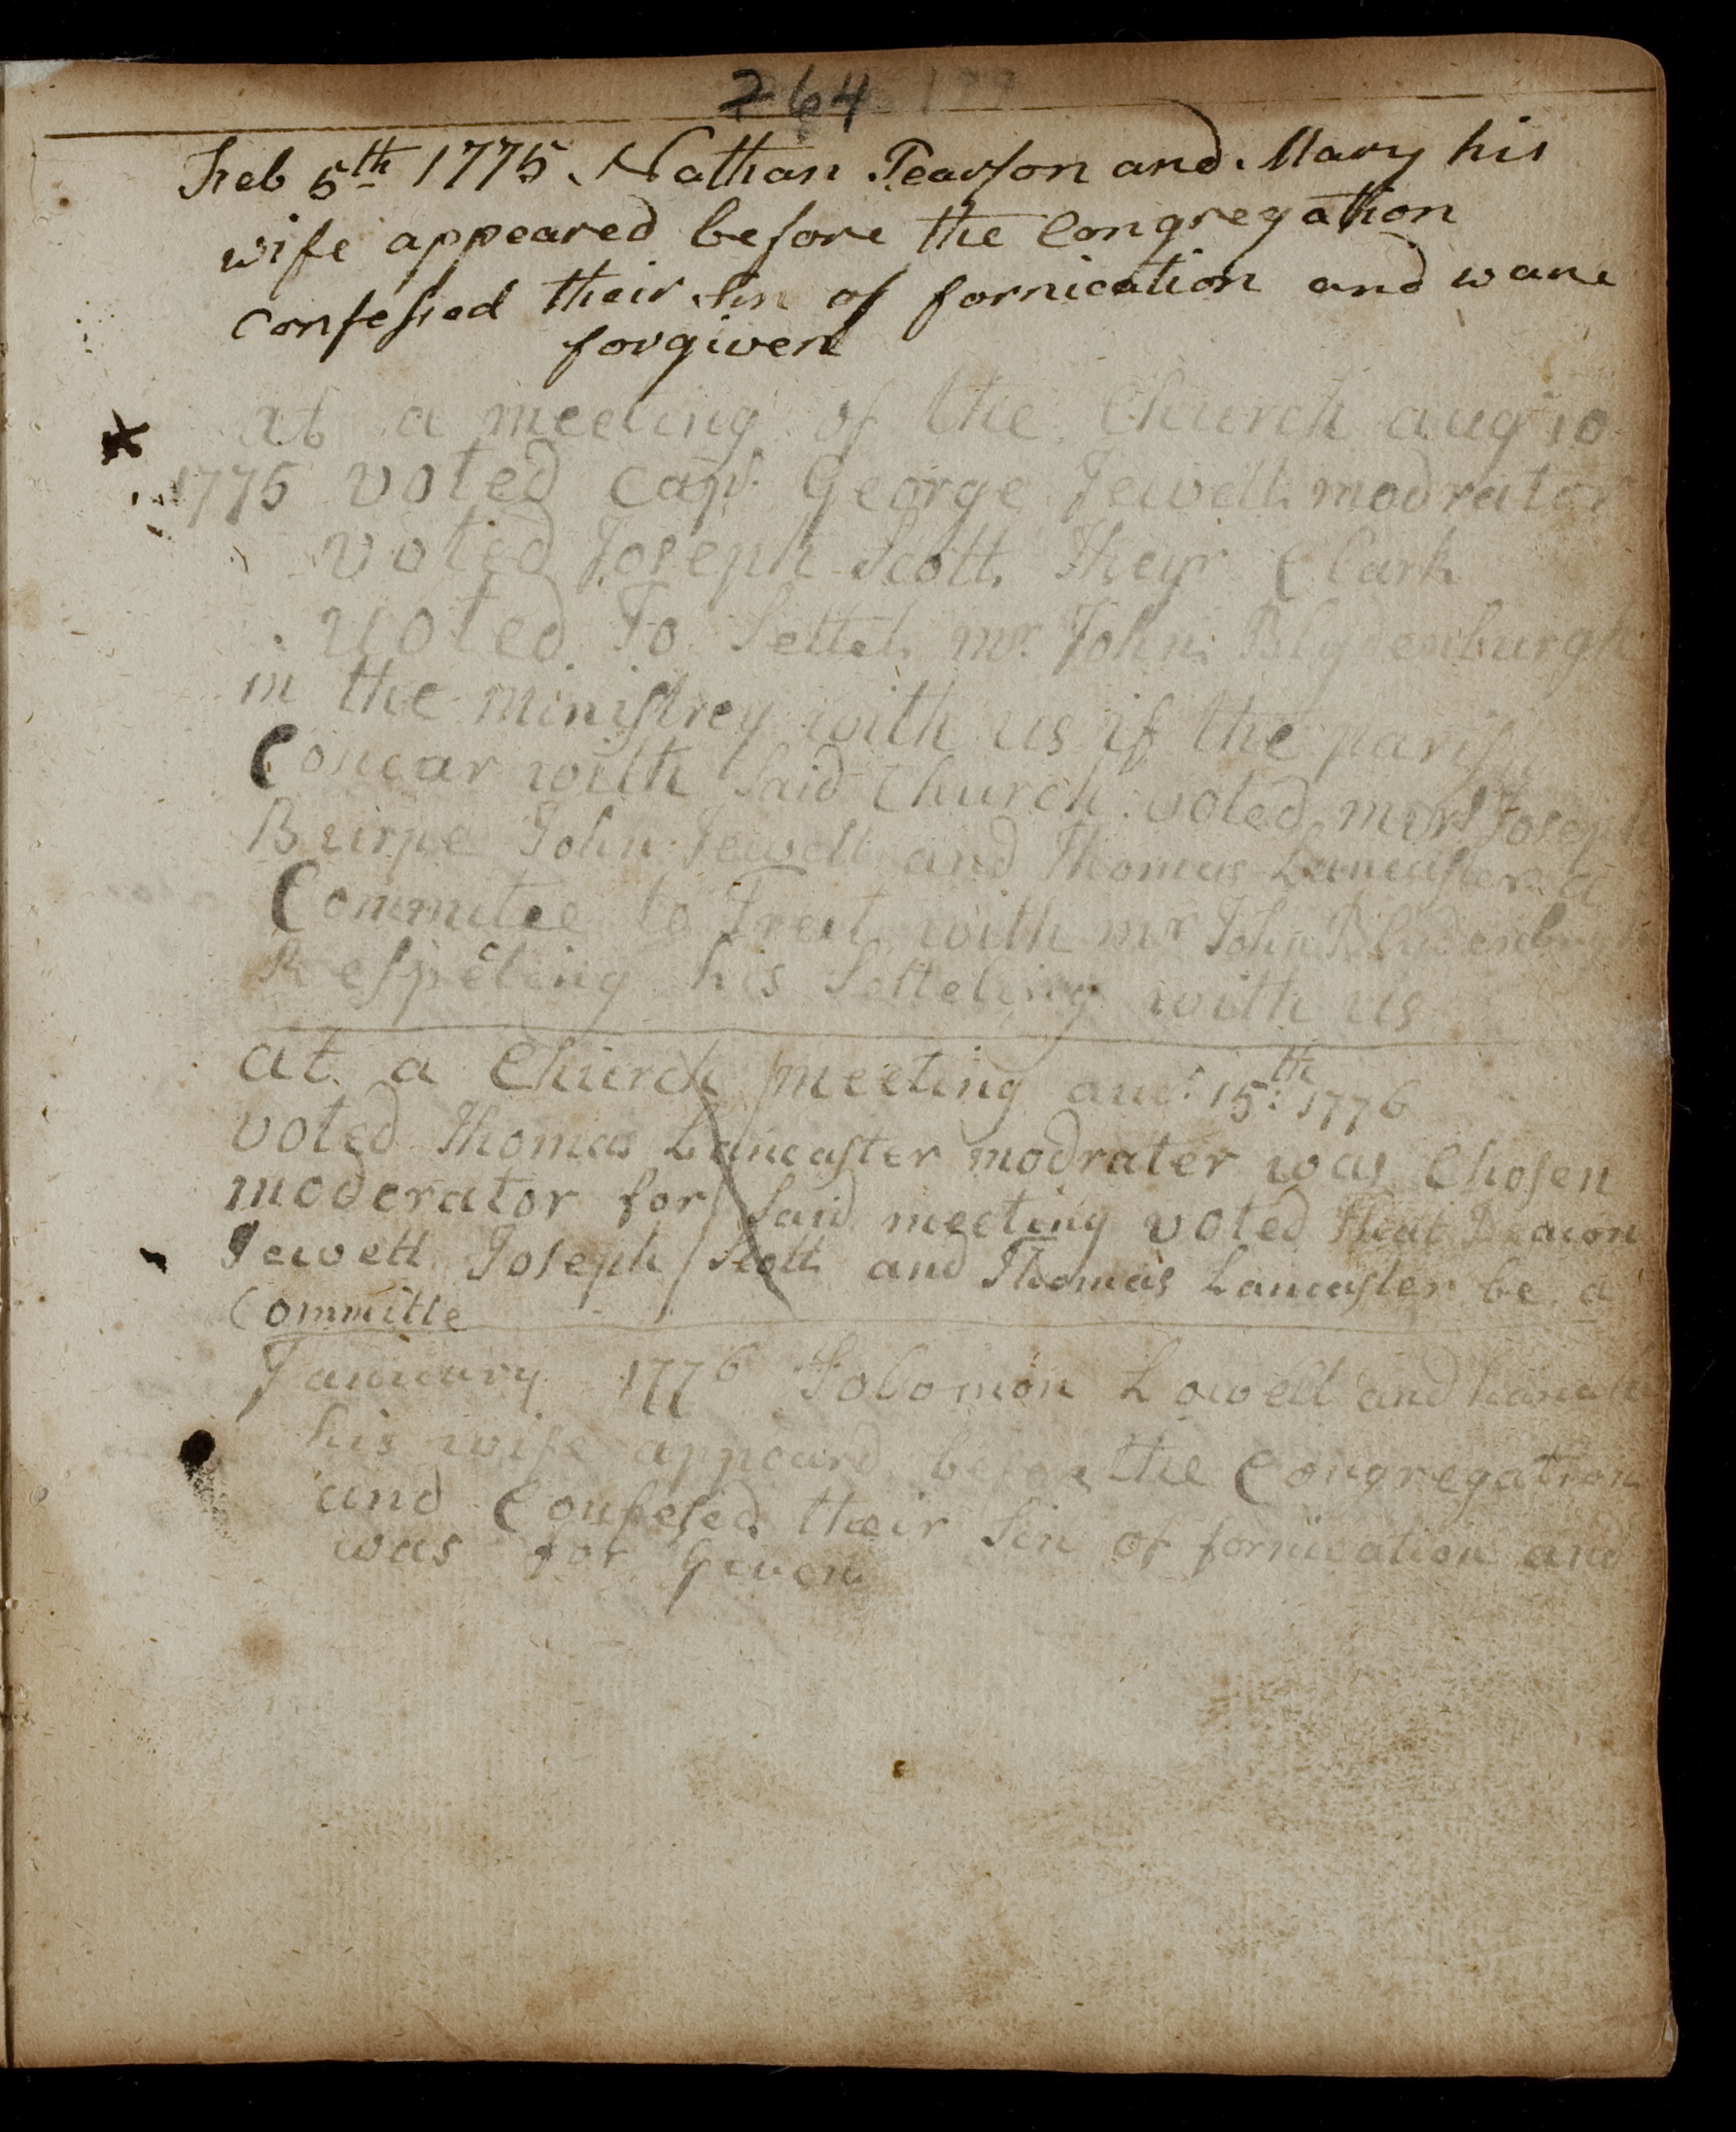 264
Feb 5th 1775 Nathan Pearson and Mary his
wife appeared before the Congregation
Confessed their Sin of fornication and ware
forgiven
at a meeting of the Church aug 10
1775 voted Capt. George Jewett modrator
voted Joseph Scott Theyr Clark
voted To Settel mr John Blydenburgh
in the ministrey with us if the parish
Concar with Said Church voted Joseph
Burpe John Jewett and Thomas Lancaster a
Commitee to Treet with mr John Blydenburgh
Respeting his Setteling with us
at a Church meeting 15th 1776
voted Thomas Lancaster modrater was Chosen
moderator for Said meeting voted That Deacon
Jewett Joseph Scott and Thomas Lancaster be a
Committe
January 1776 Solomon Lowell and
his wife appeard before the Congregation
and Confesed their Sin of fornication and
was for Given